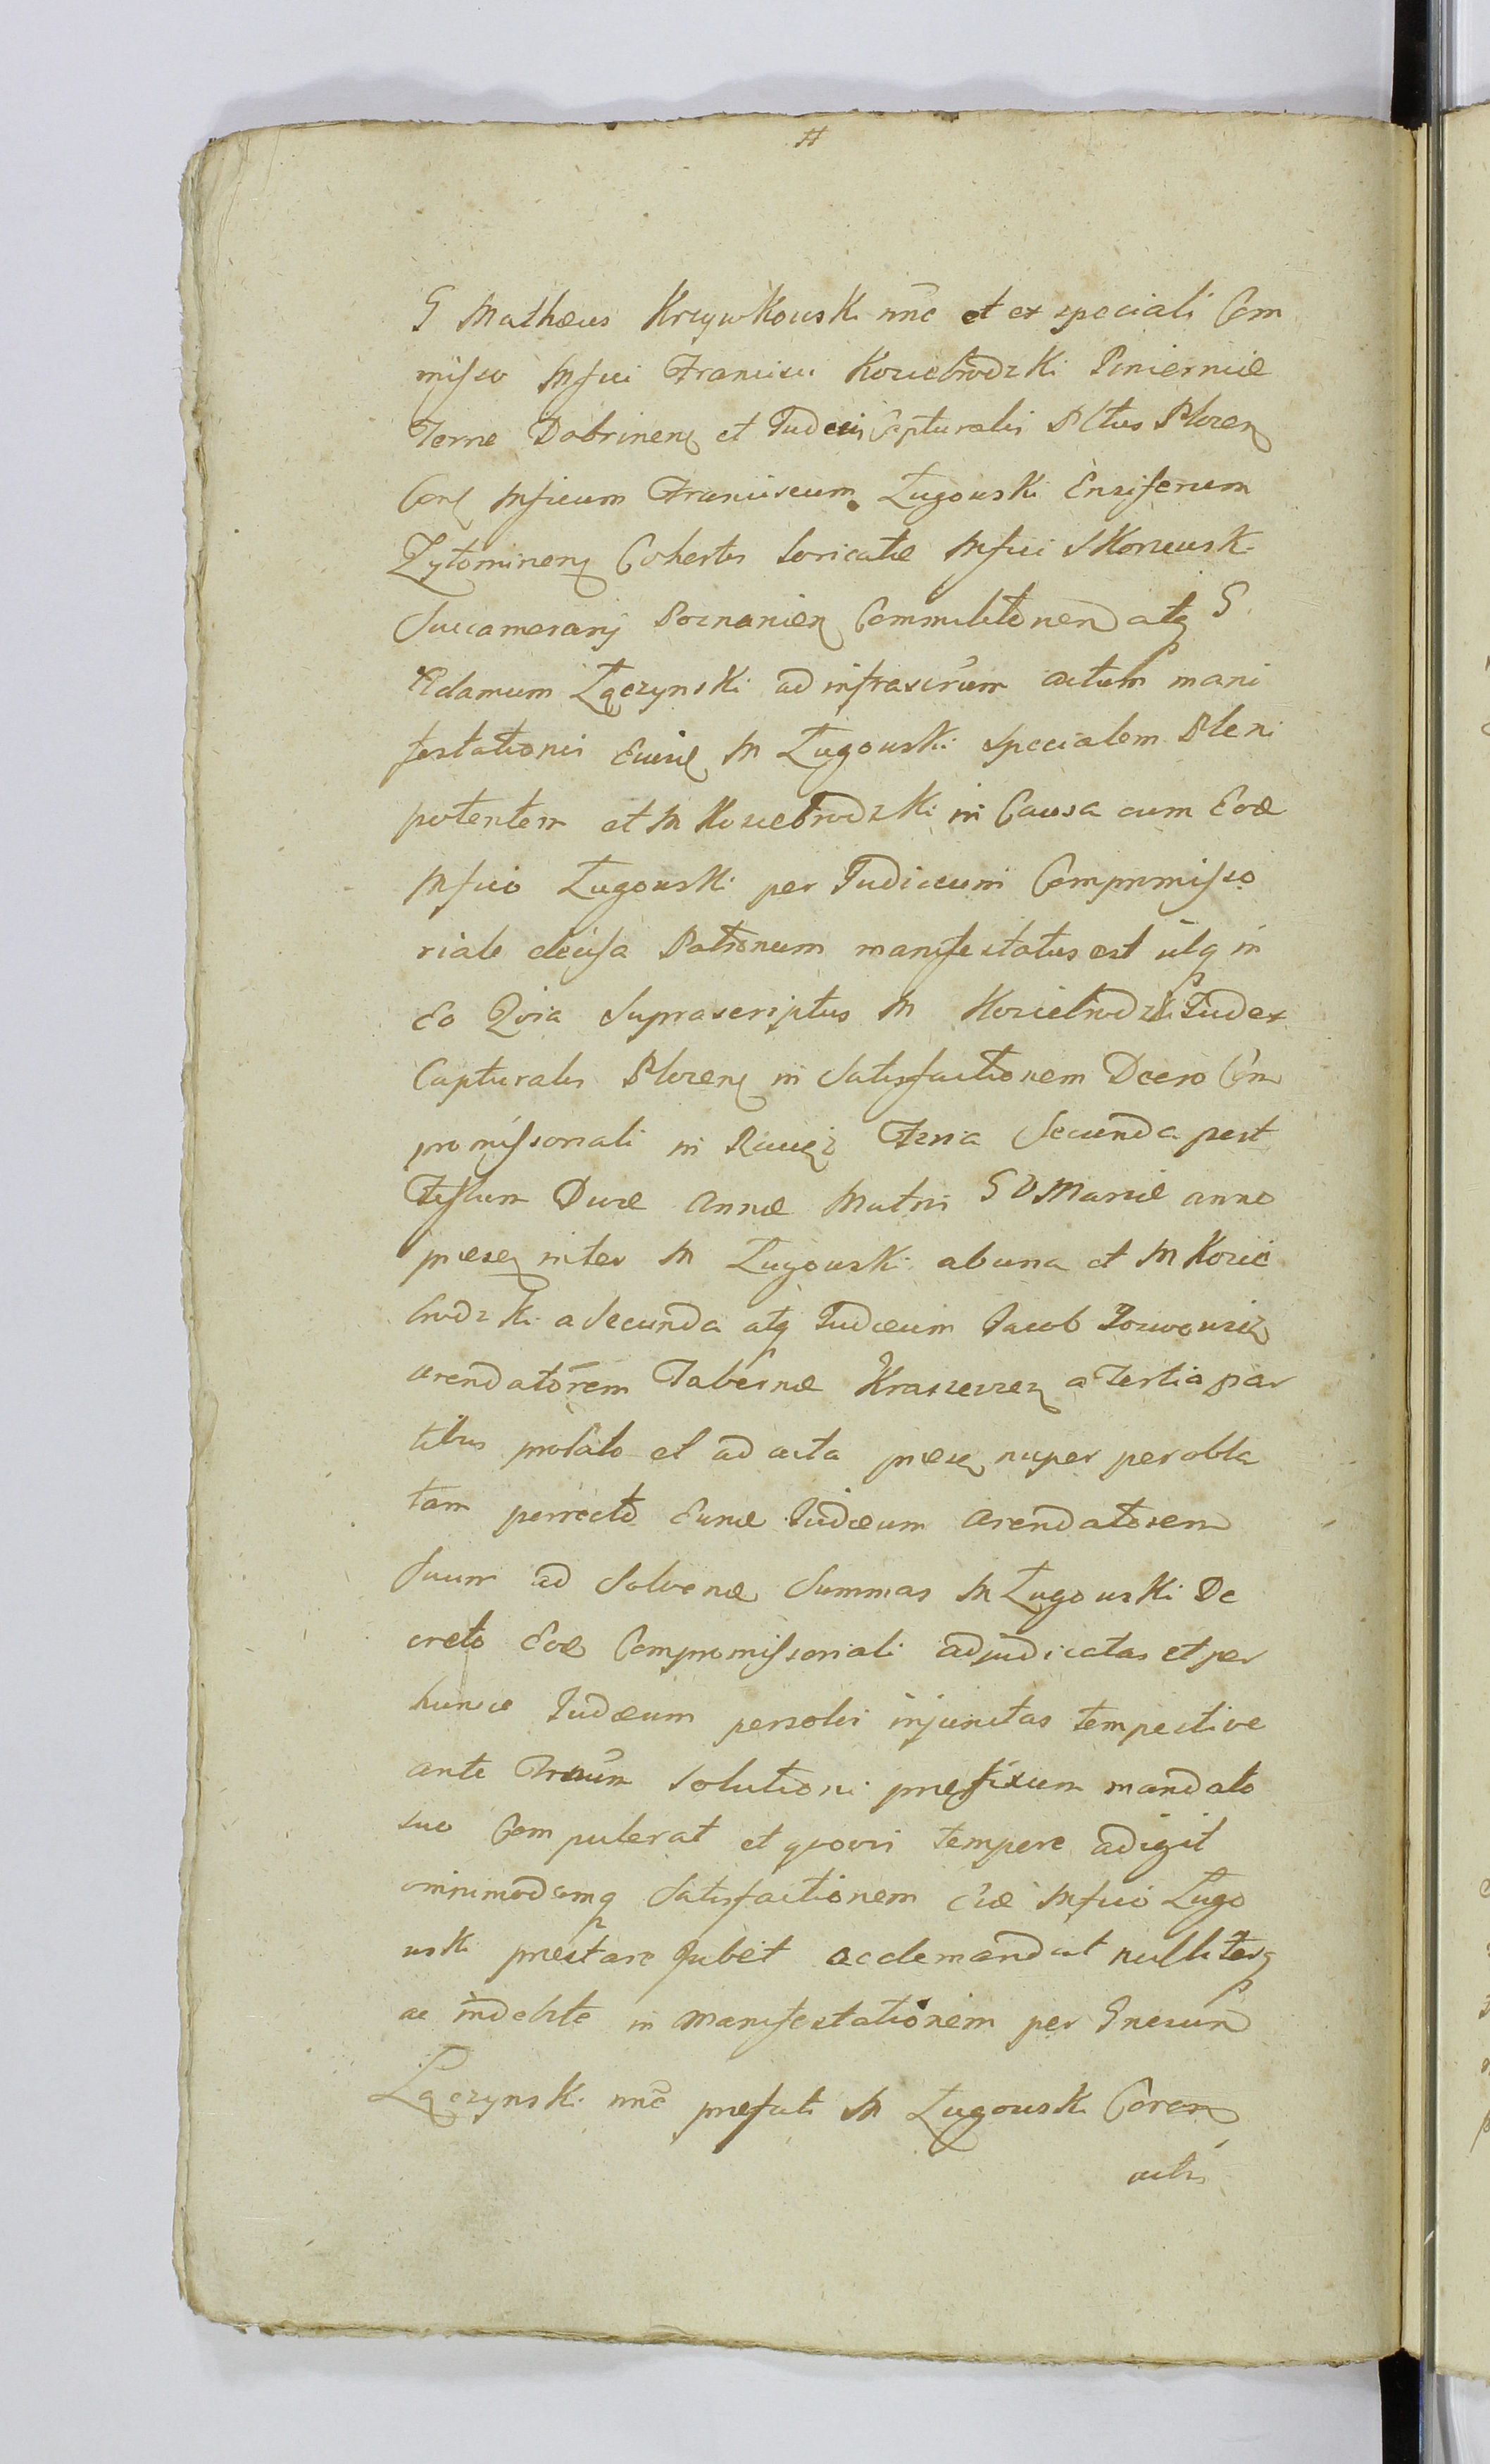 #
G Mathæus Krzywkowski nnē et ex speciali Com
misso Mfici Francisci Koziebrodzki Pinierniæ
Terræ Dobrinens et Judicis Capturalis Pltus Plocen
Cons Mficum Franciscum Zugowski Ensiferum
Zytominens Cohortis Loricatæ Mfici Skorzewski
Succamerarij Poznanien Commilitonem atq G
Adamum Łączynski ad infrascrum actum mani
festationis Eiusd M Zugowski specialem Pleni
potentem et M Koziebrodzki in Causa cum Eod
Mfico Zugowski per Judicium Compromisso
riale decisa Patronum manifestatus est itq in
Eo Quia Suprascriptus M Koziebrodzki Judex
Capturalis Plocens in Satisfactionem Dcero Com
promissoriali in Raciąz Feria Secunda post
Festum Divæ Annæ Matris G V Mariæ anno
præsen inter M Zugowski ab una et M Kozie
brodzki a Secunda atq Judæum Jacob
arendatorem Tabernæ a Tertia par
tibus prolato et ad acta præsen nuper per obla
tam porrecto Eund Judæum Arendatorem
Suum ad Solvend Summas M Zugowski De
creto Eod Compromissoriali adjudicatas et per
hunce Judæum persolvi injunctas tempestive
ante Trnum Solutioni præfixum mandato
suo Compulerat et quovis tempore adigit
omnimodamq Satisfactionem Eid Mfico Zugo
wski præstare Jubet ac demandat nulliterq
ac indebite in Manifestationem per Gnesum
Łączynski nnē præfati M Zugowski Coram
actis